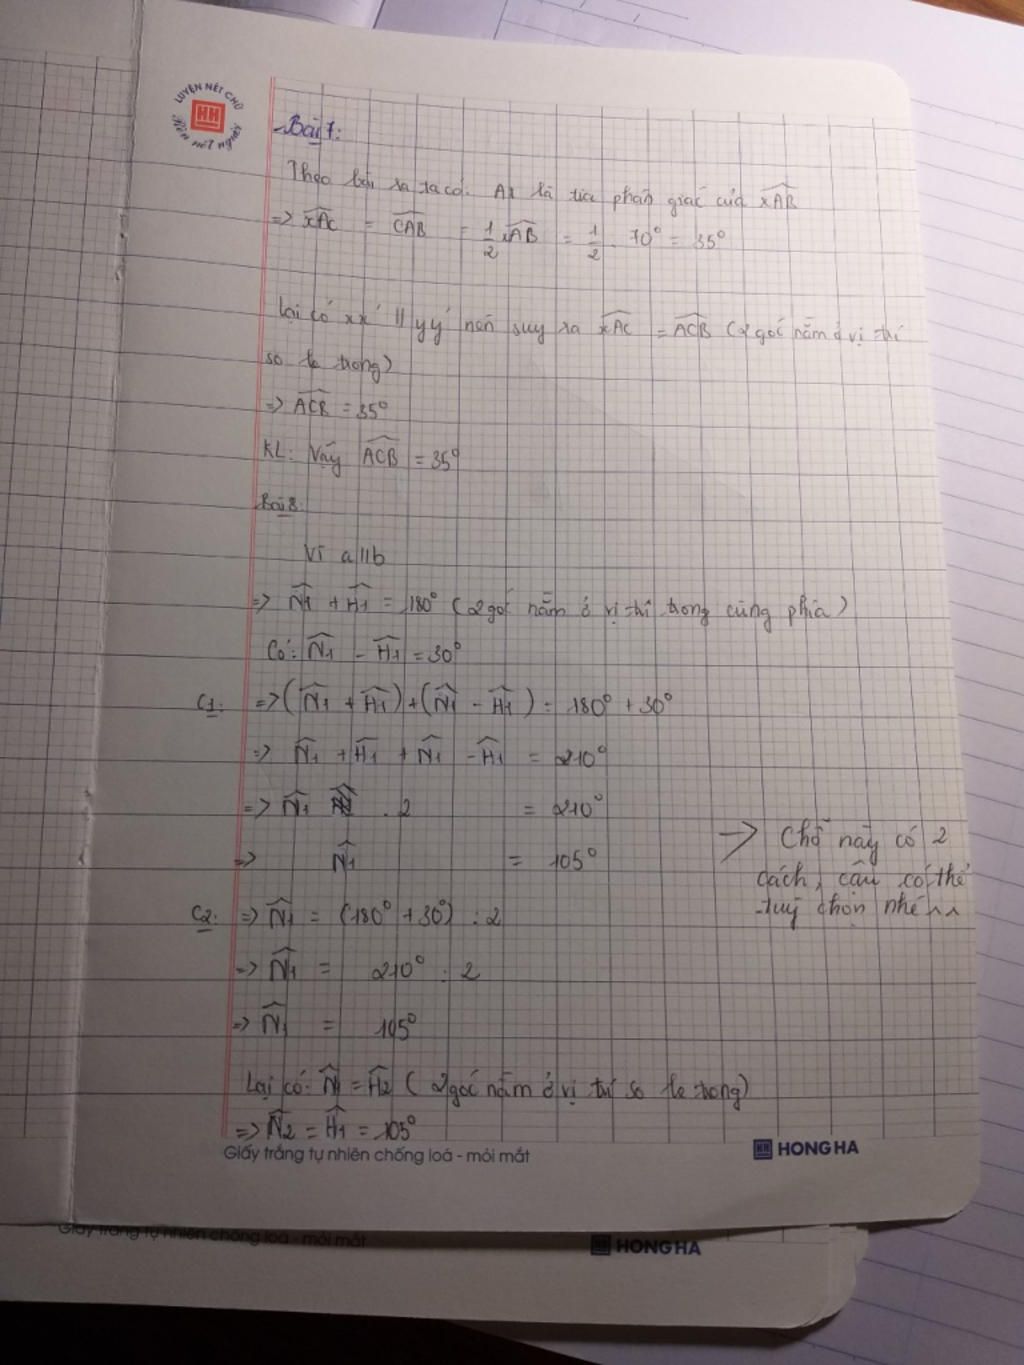 LUYỆN NÉT CHỮ
HH
Rèn nét người
Bài 7:
Theo bài ra ta có: Ax là tia phân giác của xAB
=> xAC = CAB = 1/2 xAB = 1/2 . 70° = 35°
Lại có xx' // yy' nên suy ra xAC = ACB (2 góc nằm ở vị trí
so le trong)
=> ACB = 35°
KL: Vậy ACB = 35°
Bài 8:
Vì a // b
=> N1 + H1 = 180° (2 góc nằm ở vị trí trong cùng phía)
Có: N1 - H1 = 30°
C1: => (N1 + H1) + (N1 - H1) = 180° + 30°
=> N1 + H1 + N1 - H1 = 210°
=> N1 . 2 = 210°
=> N1 = 105°
-> Chỗ này có 2
cách, cậu có thể
tuỳ chọn nhé ^^
C2: => N1 = (180° + 30°) : 2
=> N1 = 210° : 2
=> N1 = 105°
Lại có: N1 = H2 (2 góc nằm ở vị trí so le trong)
=> N2 = H1 = 105°
Giấy trắng tự nhiên chống loá - mỏi mắt
HH HONG HA
Giấy trắng tự nhiên chống loá - mỏi mắt
HONG HA